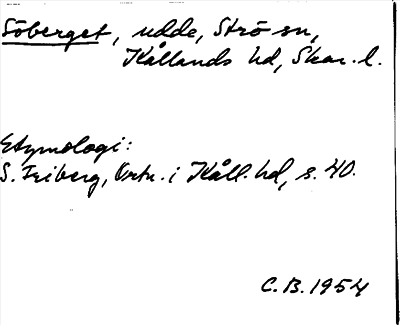 Söberget, udde, Strö sn,
Kållands hd, Skar. l.
Etymologi:
S. Friberg, Ortn. i Kåll. hd, s. 40.
C.B. 1954